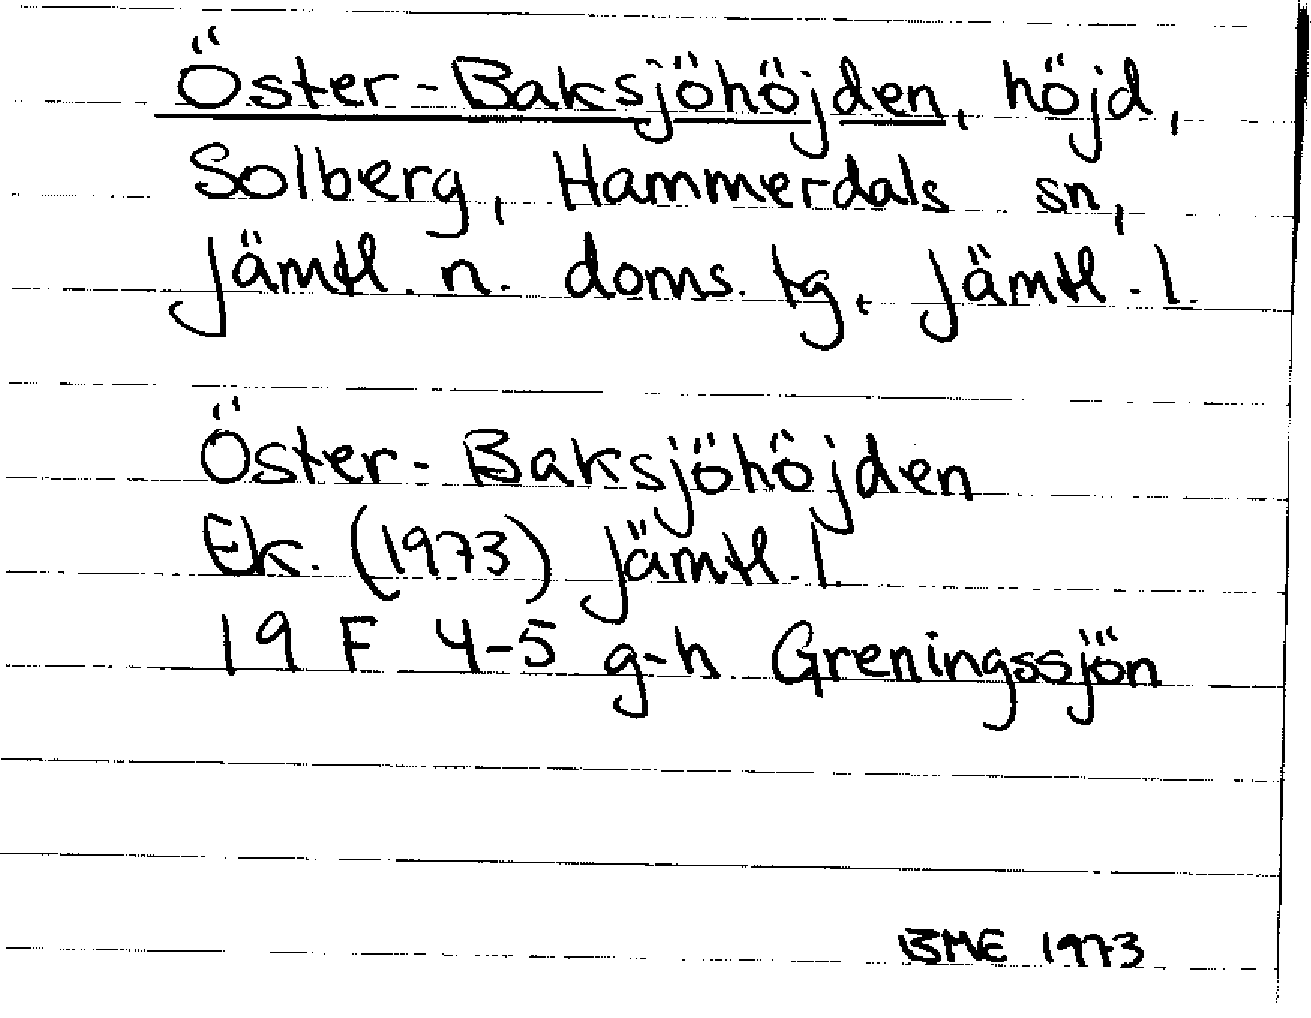 Öster-Baksjöhöjden, höjd,
Solberg, Hammerdals sn,
Jämtl. n. doms. tg, Jämtl. l.
Öster-Baksjöhöjden
Ek. (1973) Jämtl. l.
19 F 4-5 g-h Greningssjön
BME 1973